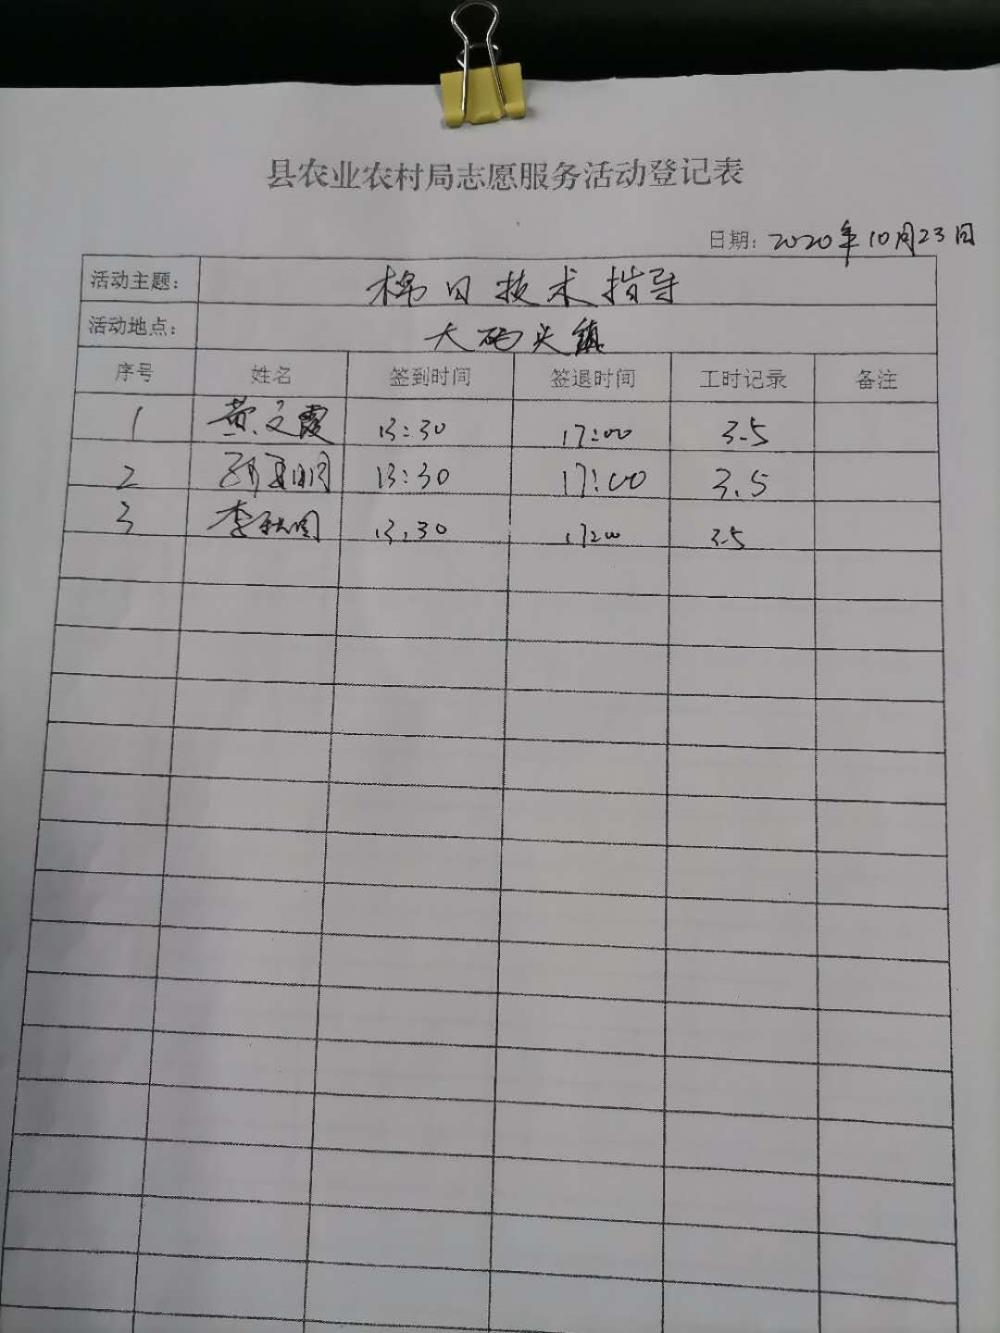 县农业农村局志愿服务活动登记表
日期: 2020年10月23日
活动主题: 棉田技术指导
活动地点: 大码头镇
序号 姓名 签到时间 签退时间 工时记录 备注
1 黄文霞 13:30 17:00 3.5
2 13:30 17:00 3.5
3 李秋国 13:30 17:00 3.5